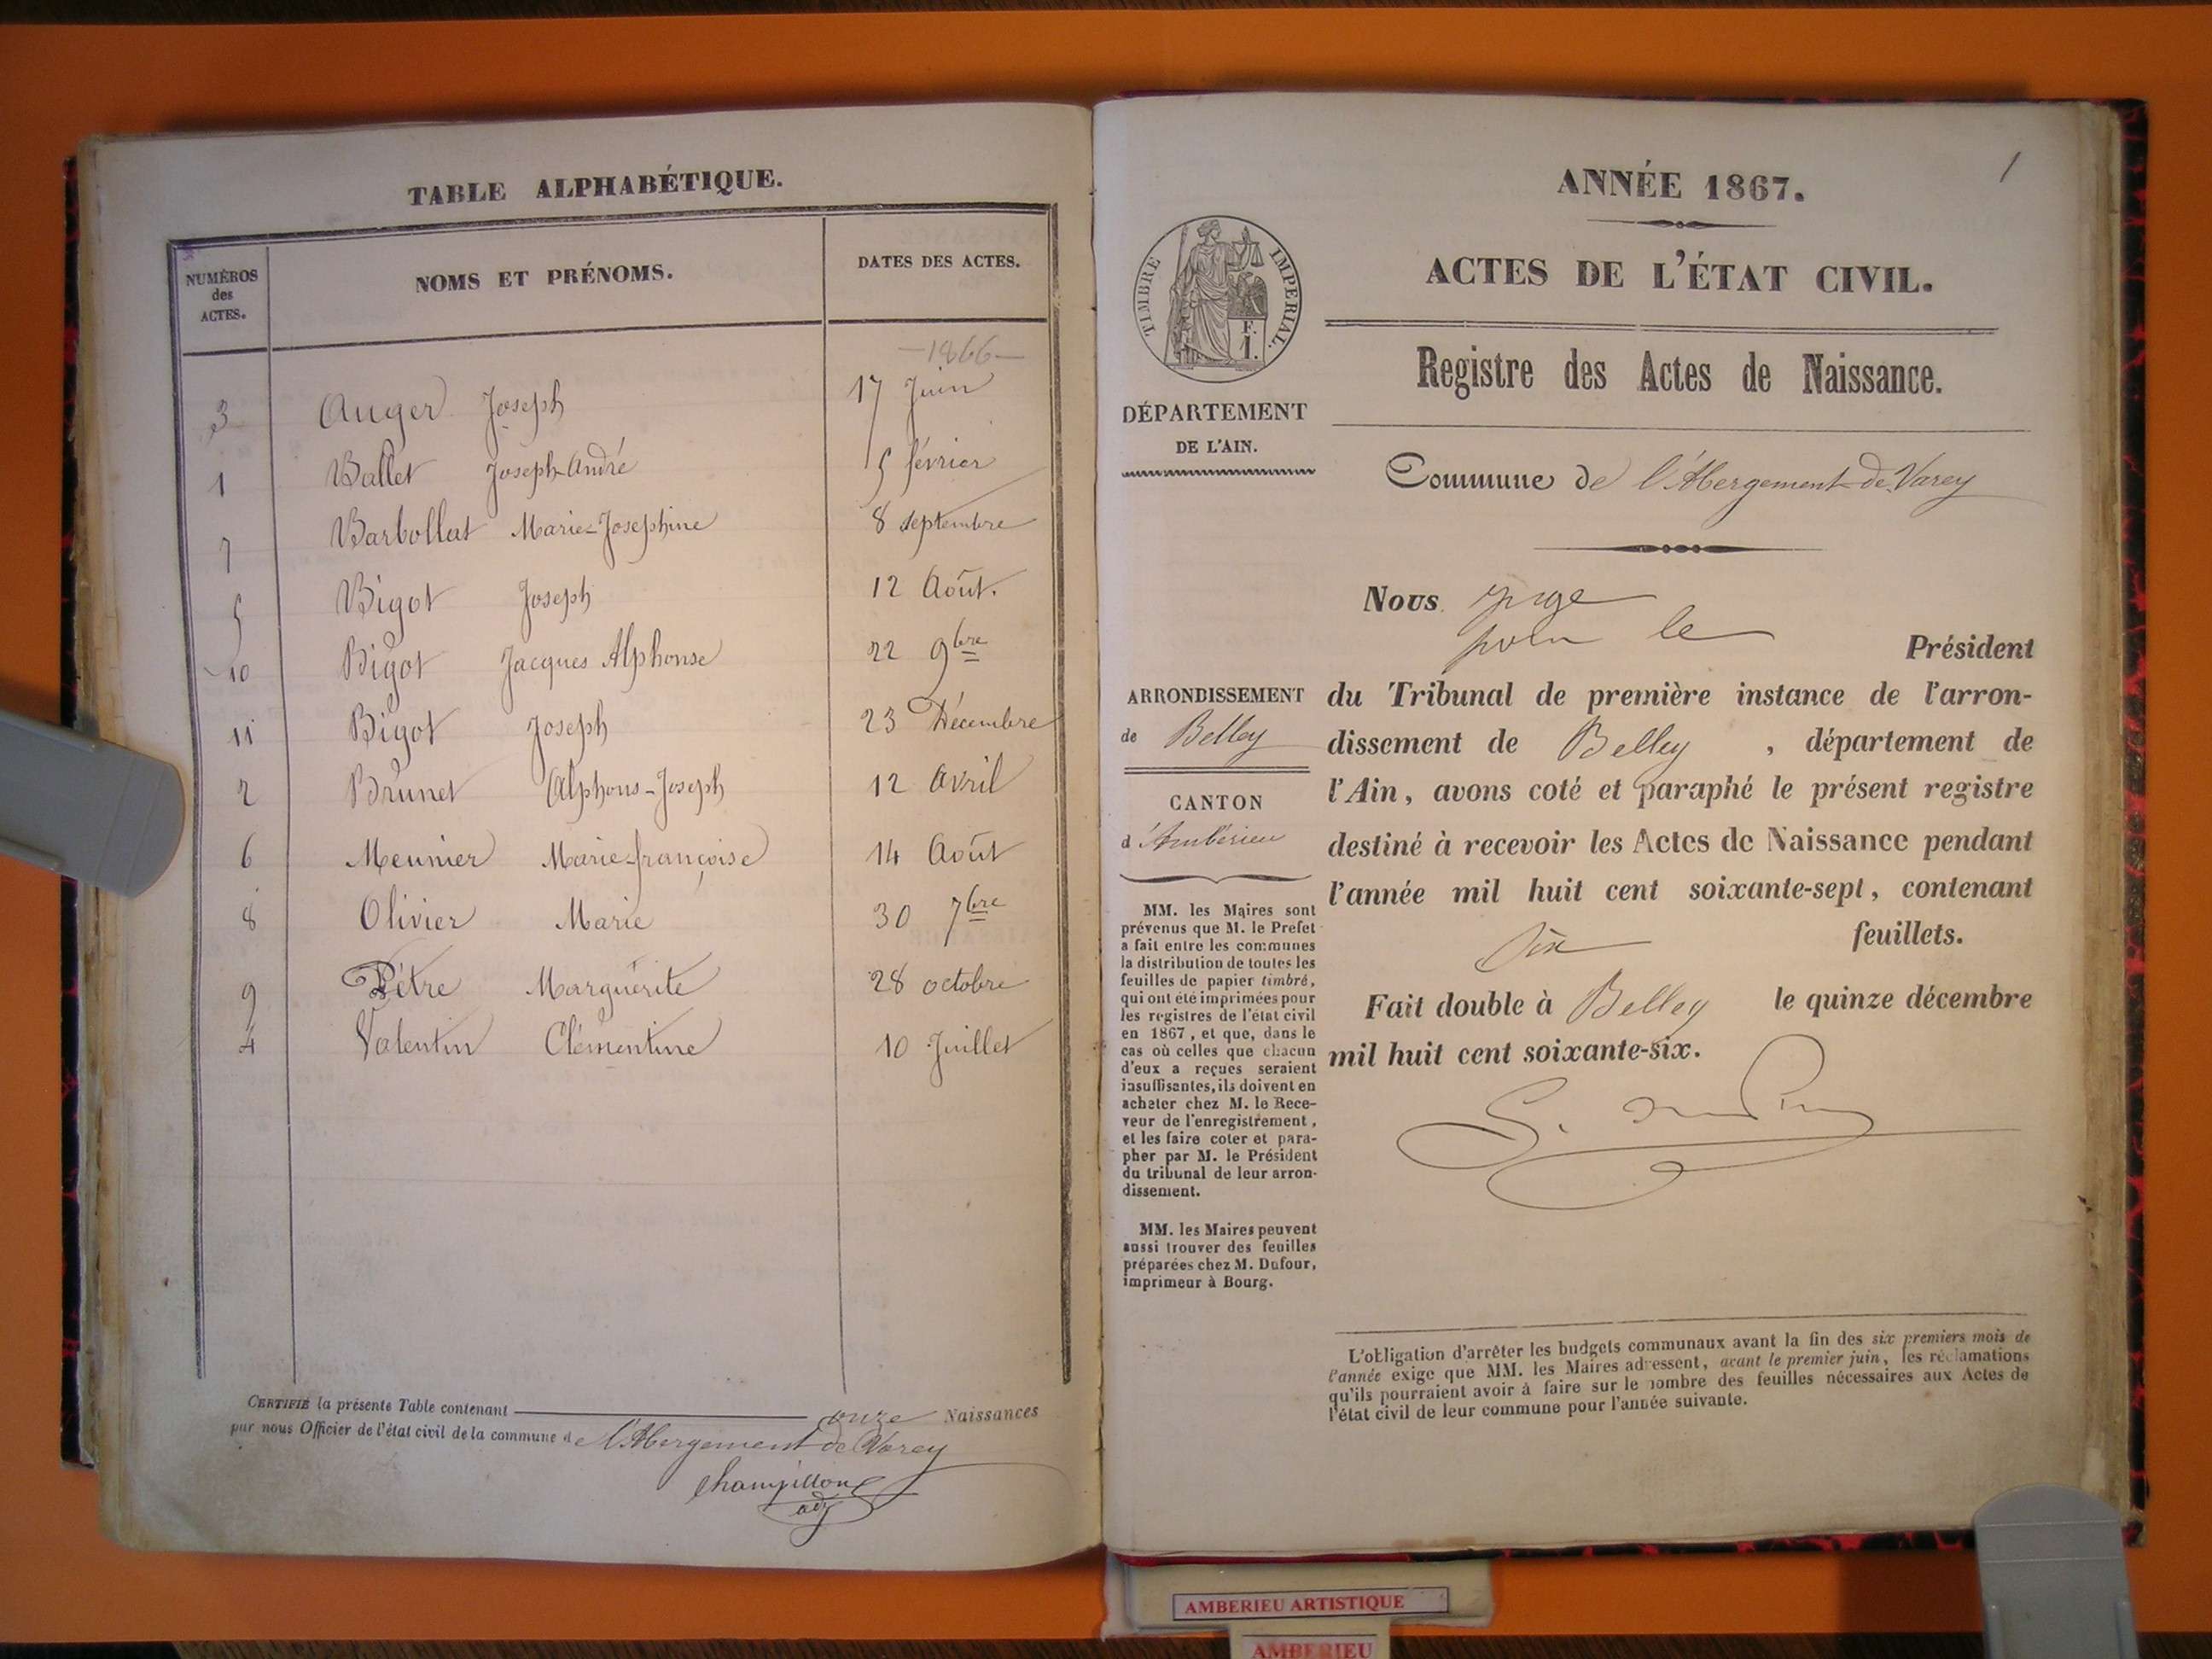 TABLE ALPHABÉTIQUE.
NUMÉROS des ACTES.
NOMS ET PRÉNOMS.
DATES DES ACTES.
—1866—
3 Auger Joseph 17 Juin
1 Ballet Joseph-André 5 février
7 Barbollat Marie-Josephine 8 septembre
5 Bigot Joseph 12 Août.
10 Bigot Jacques Alphonse 22 9bre
11 Bigot Joseph 23 Décembre
2 Brunet Alphons-Joseph 12 Avril
6 Meunier Marie-françoise 14 Août
8 Olivier Marie 30 7bre
9 Pètre Marguérite 28 octobre
4 Valentin Clémentine 10 Juillet
CERTIFIÉ la présente Table contenant onze Naissances
par nous Officier de l'état civil de la commune de l'Abergement de Varey
Champillon
adj
1
ANNÉE 1867.
ACTES DE L'ÉTAT CIVIL.
TIMBRE IMPERIAL.
F.
1.
Registre des Actes de Naissance.
DÉPARTEMENT
DE L'AIN.
Commune de l'Abergement-de-Varey
Nous juge
pour le
Président
ARRONDISSEMENT
de Belley
CANTON
d'Ambérieu
du Tribunal de première instance de l'arron-
dissement de Belley , département de
l'Ain, avons coté et paraphé le présent registre
destiné à recevoir les Actes de Naissance pendant
l'année mil huit cent soixante-sept, contenant
six feuillets.
Fait double à Belley le quinze décembre
mil huit cent soixante-six.
MM. les Maires sont
prévenus que M. le Prefet
a fait entre les communes
la distribution de toutes les
feuilles de papier timbré,
qui ont été imprimées pour
les registres de l'état civil
en 1867, et que, dans le
cas où celles que chacun
d'eux a reçues seraient
insuffisantes, ils doivent en
acheter chez M. le Rece-
veur de l'enregistrement,
et les faire coter et para-
pher par M. le Président
du tribunal de leur arron-
dissement.
MM. les Maires peuvent
aussi trouver des feuilles
préparées chez M. Dufour,
imprimeur à Bourg.
L'obligation d'arrêter les budgets communaux avant la fin des six premiers mois de
l'année exige que MM. les Maires adressent, avant le premier juin, les réclamations
qu'ils pourraient avoir à faire sur le nombre des feuilles nécessaires aux Actes de
l'état civil de leur commune pour l'année suivante.
AMBERIEU ARTISTIQUE
AMBERIEU